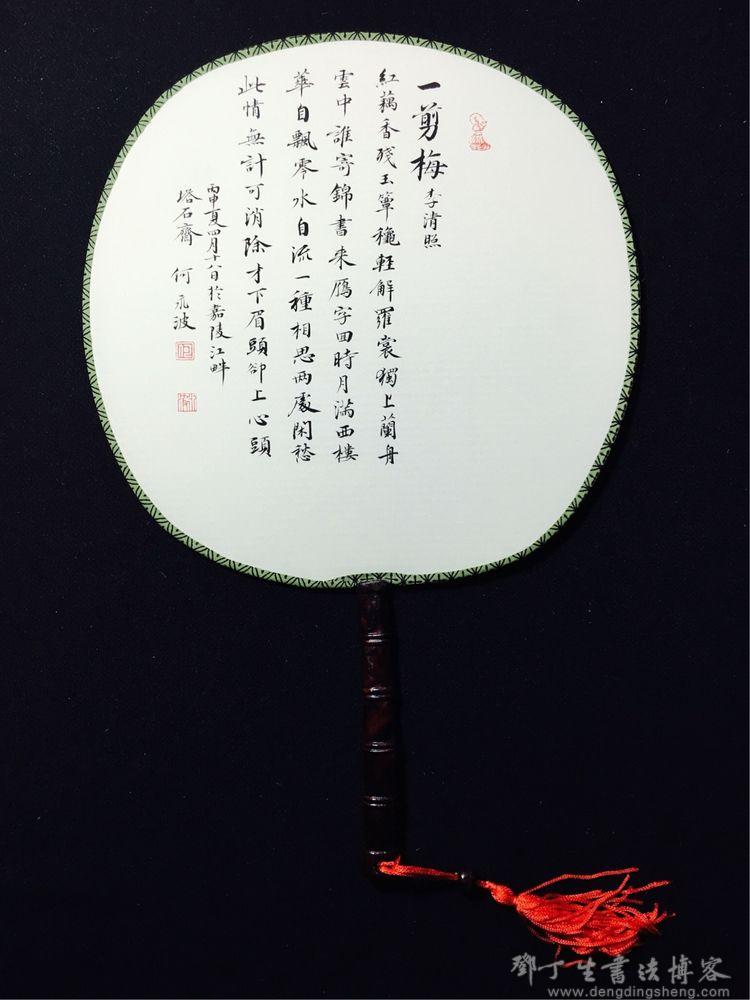 一剪梅 李清照
紅藕香殘玉簟龝輕解羅裳獨上蘭舟
雲中誰寄錦書来鴈字回時月滿西樓
華自飄零水自流一種相思兩處閑愁
此情無計可消除才下眉頭卻上心頭
丙申夏四月十八日於嘉陵江畔
塔石齋 何永波
鄧丁生書法博客
www.dengdingsheng.com